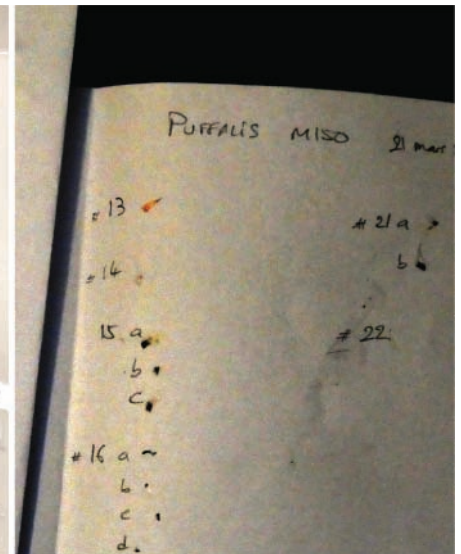 PUFFALIS MISO 21 mars
# 13
# 14
15 a
b
c
# 16 a
b
c
d
# 21 a
b
# 22